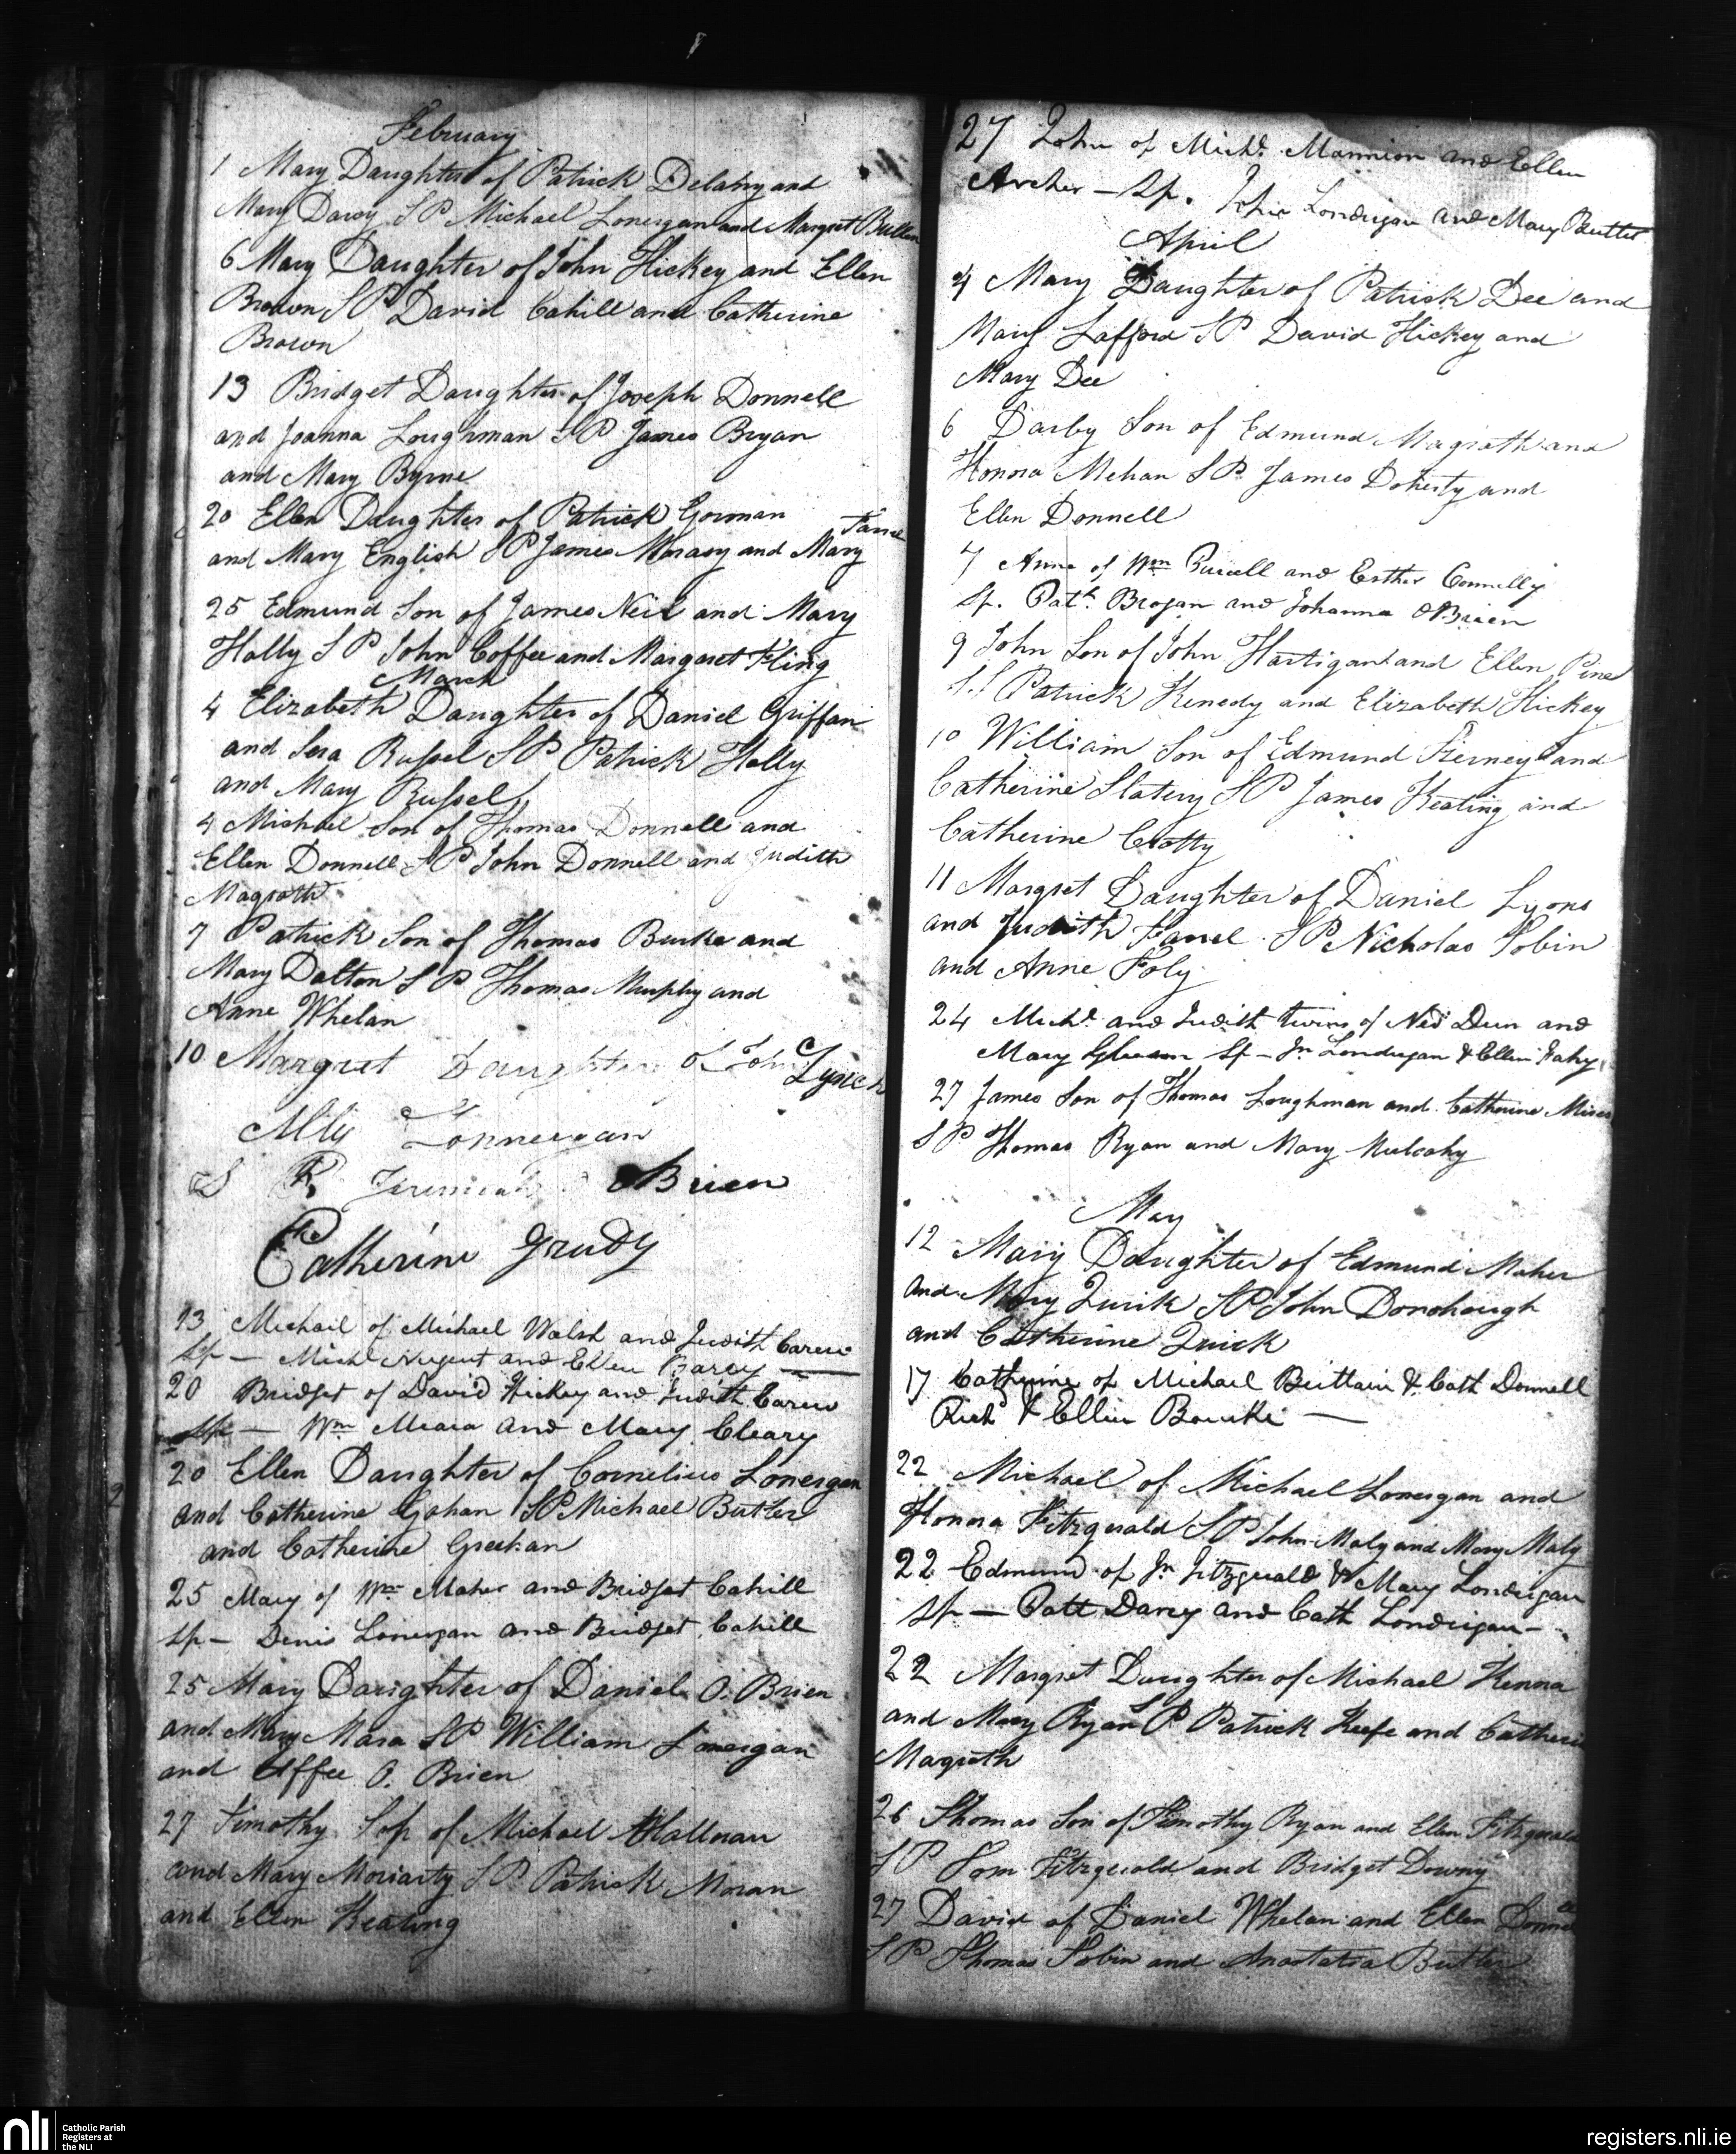 February
1 Mary Daughter of Patrick Delahy and
Mary Darcy S P Michael Lonergan and Margret Butler
6 Mary Daughter of John Hickey and Ellen
Brown S P David Cahill and Catherine
Brown
13 Bridget Daughter of Joseph Donnell
and Joanna Loughman S P James Bryan
and Mary Byrne
20 Ellen Daughter of Patrick Gorman
and Mary English S P James and Mary
25 Edmund Son of James Neil and Mary
Hally S P John Coffee and Margaret Kling
March
4 Elizabeth Daughter of Daniel Griffan
and Sera Russel S P Patrick Hally
and Mary Russel
4 Michael Son of Thomas Donnell and
Ellen Donnell S P John Donnell and Judith
Magrath
7 Patrick Son of Thomas Burke and
Mary Dalton S P Thomas Murphy and
Anne Whelan
10 Margret Daughter of John Lynch
Ally Lonnergan
S P Jeremiah OBrien
Catherine Grudy
13 Michail of Michael Walsh and Judith Carew
Sp – Michl Nugent and Ellen Darcy —
20 Bridget of David Hickey and Judith Carew
Sp — Wm Meara and Mary Cleary
20 Ellen Daughter of Cornelius Lonergan
and Catherine Gahan S P Michael Butler
and Catherine Greehan
25 Mary of Wm Maher and Bridget Cahill
Sp – Denis Lonergan and Bridget Cahill
25 Mary Daughter of Daniel O. Brien
and Mary Mara S P William Lonergan
and Affee O. Brien
27 Timothy Son of Michael Halloran
and Mary Moriarty S P Patrick Moran
and Ellen Keating
27 John of Michl Mannion and Ellen
Archer – Sp. John Londrigan and Mary Butler
April
4 Mary Daughter of Patrick Dee and
Mary Lafford S P David Hickey and
Mary Dee
6 Darby Son of Edmund Magrath and
Honora Mehan S P James Doherty and
Ellen Donnell
7 Anne of Wm Purcell and Esther Connelly
Sp. Patk Brogan and Johanna OBrien
9 John Son of John Hartigan and Ellen Pine
S P Patrick Kenedy and Elizabeth Hickey
10 William Son of Edmund Tierney and
Catherine Slatery S P James Keating and
Catherine Crotty
11 Margret Daughter of Daniel Lyons
and Judith Farrel S P Nicholas Tobin
and Anne Foly
24 Michl and Judith twins of Ned Dun and
Mary Gleeson Sp – Jn Londregan & Ellen Fahy
27 James Son of Thomas Loughman and Catherine
S P Thomas Ryan and Mary Mulcahy
May
12 Mary Daughter of Edmund Maher
and Mary Quirk S P John Donohough
and Catherine Quick
17 Catherine of Michael Brittain & Cath Donnell
Richd & Ellen Bourke —
22 Michael of Michael Lonergan and
Honora Fitzgerald S P John Maly and Mary Maly
22 Edmund of Jn Fitzgerald & Mary Londrigan
Sp — Patt Darcy and Cath Londrigan –
22 Margret Daughter of Michael Kenna
and Mary Ryan S P Patrick Keefe and Catheri
Magrath
26 Thomas Son of Timothy Ryan and Ellen Fitzgerald
S P Tom Fitzgerald and Bridget Downy
27 David of Daniel Whelan and Ellen Donnell
S P Thomas Tobin and Anastatia Butler
nli Catholic Parish
Registers at
the NLI
registers.nli.ie